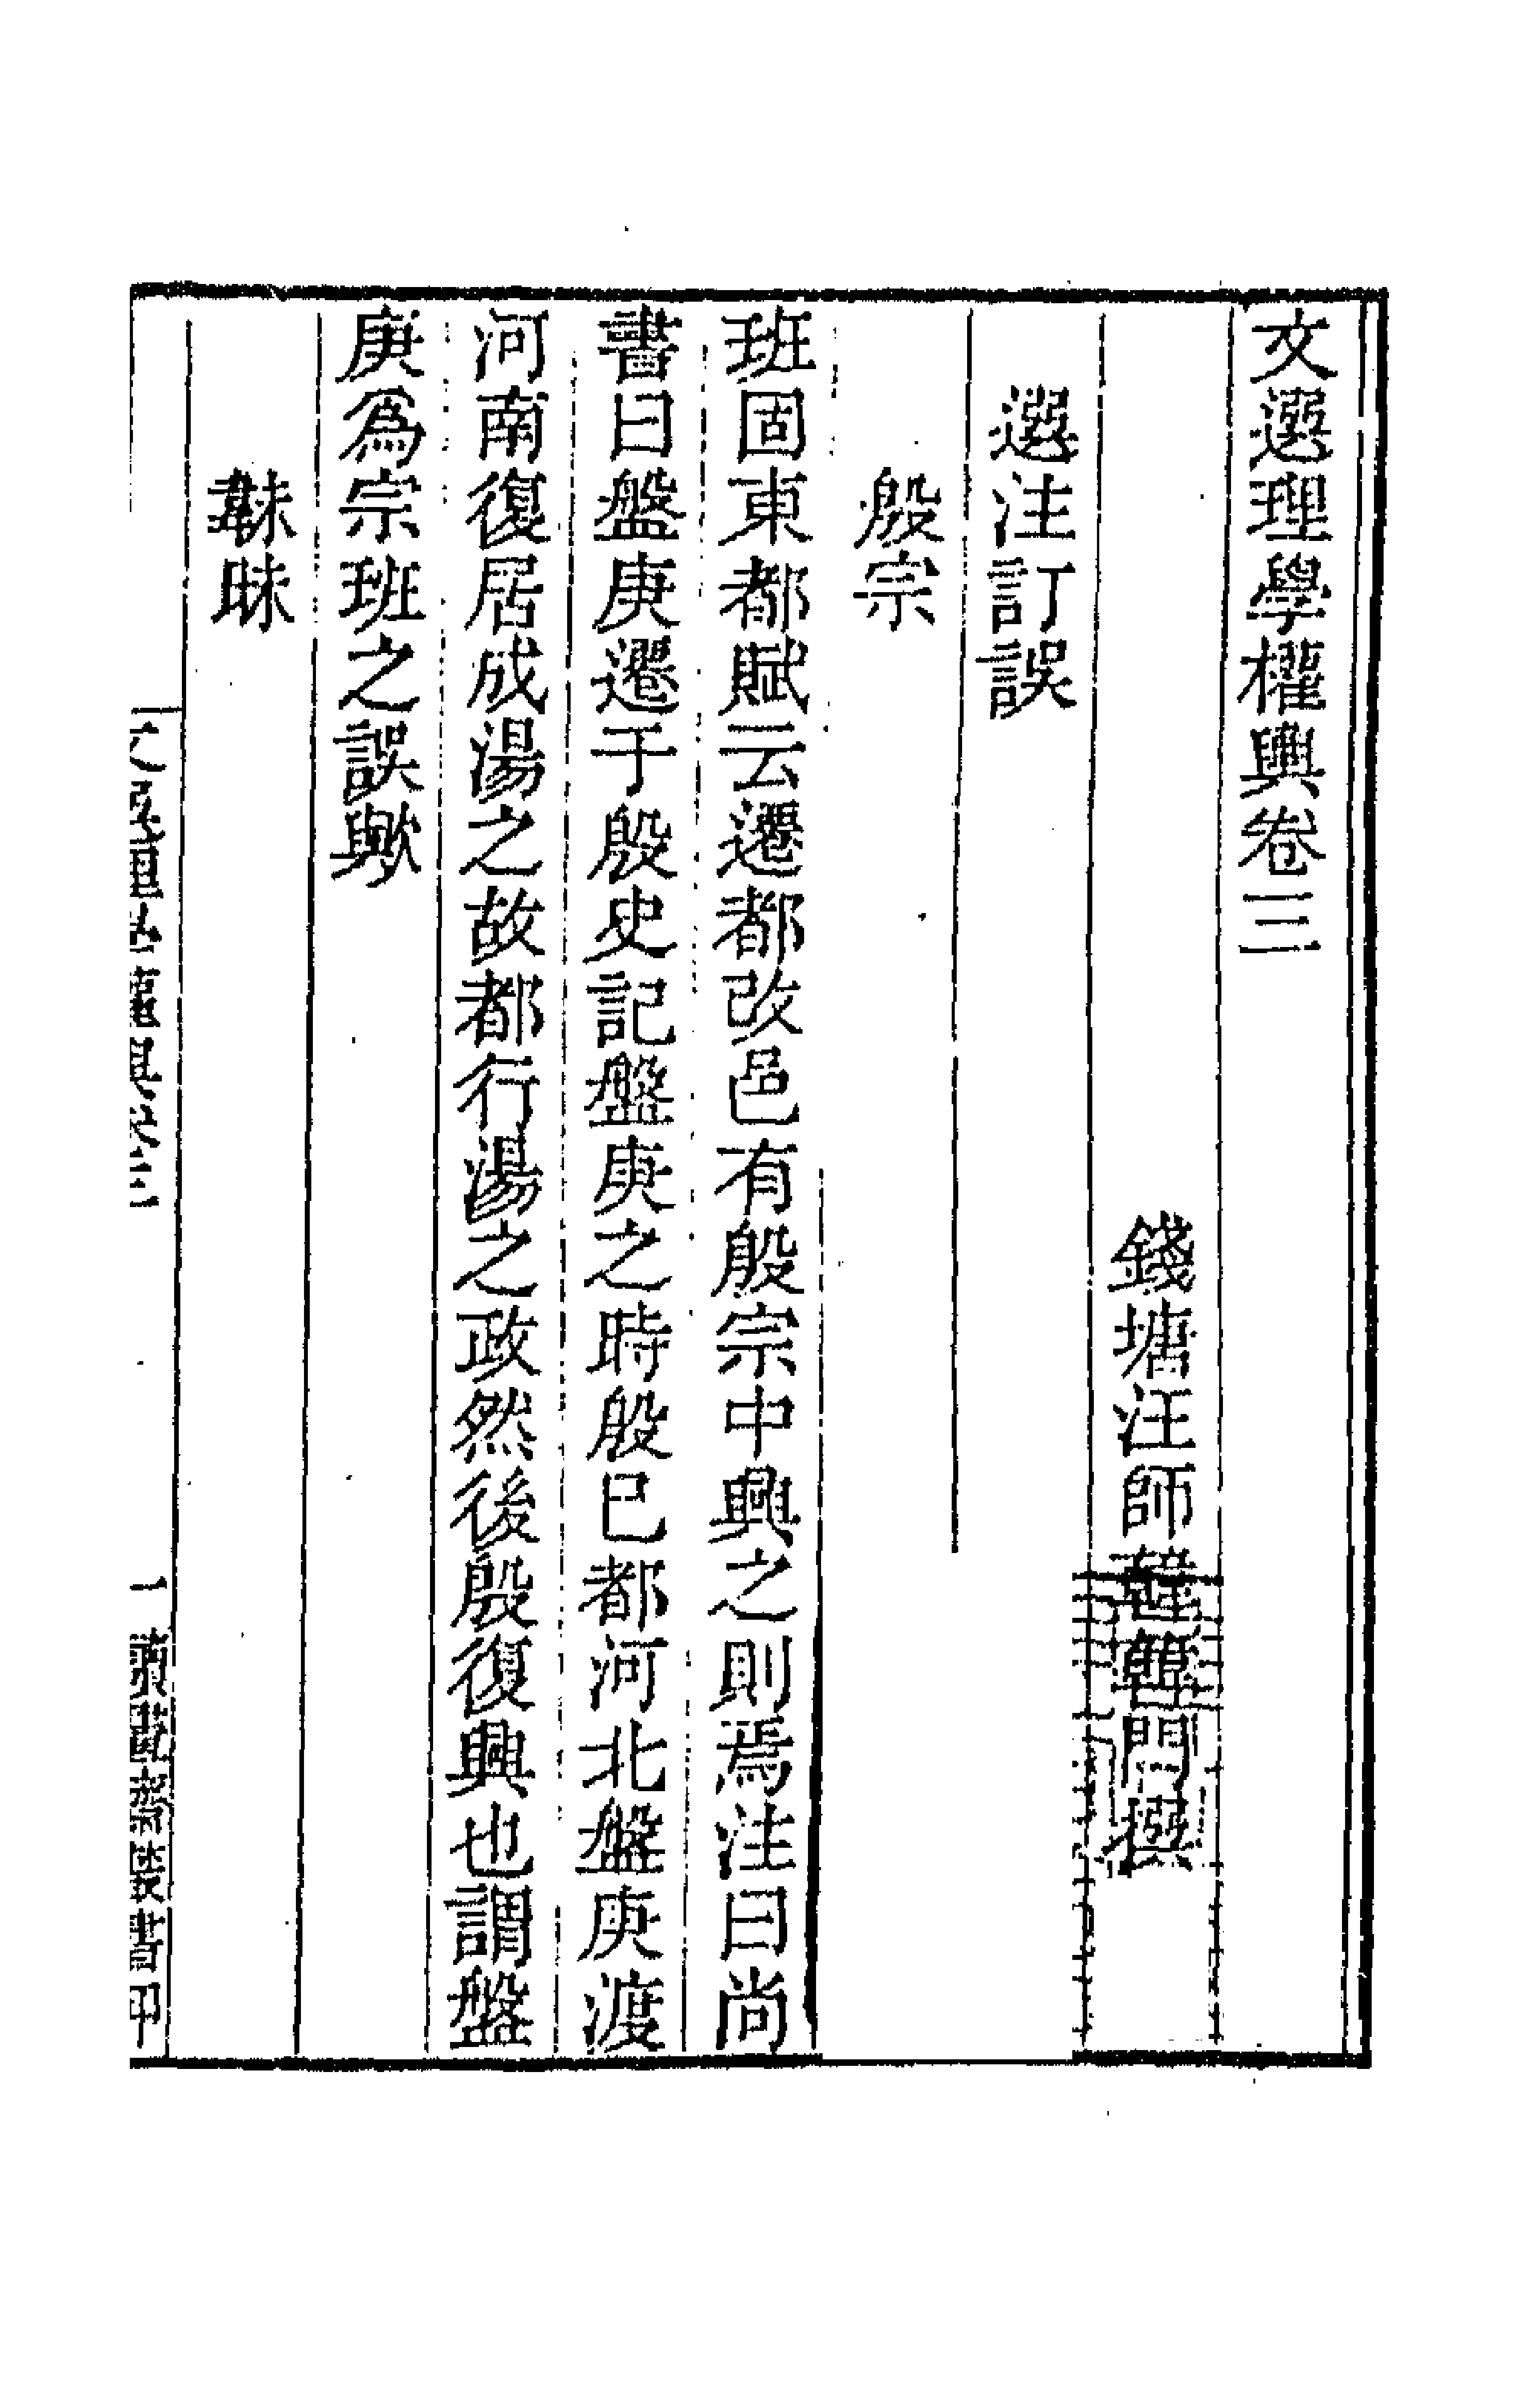 文選理學權輿卷三
錢塘汪師韓韓門撰
選注訂誤
殷宗
班固東都賦云遷都改邑有殷宗中興之則焉注曰尚
書曰盤庚遷于殷史記盤庚之時殷巳都河北盤庚渡
河南復居成湯之故都行湯之政然後殷復興也謂盤
庚爲宗班之誤歟
韎昧
文選理學權輿卷三
一
讀畫齋叢書甲